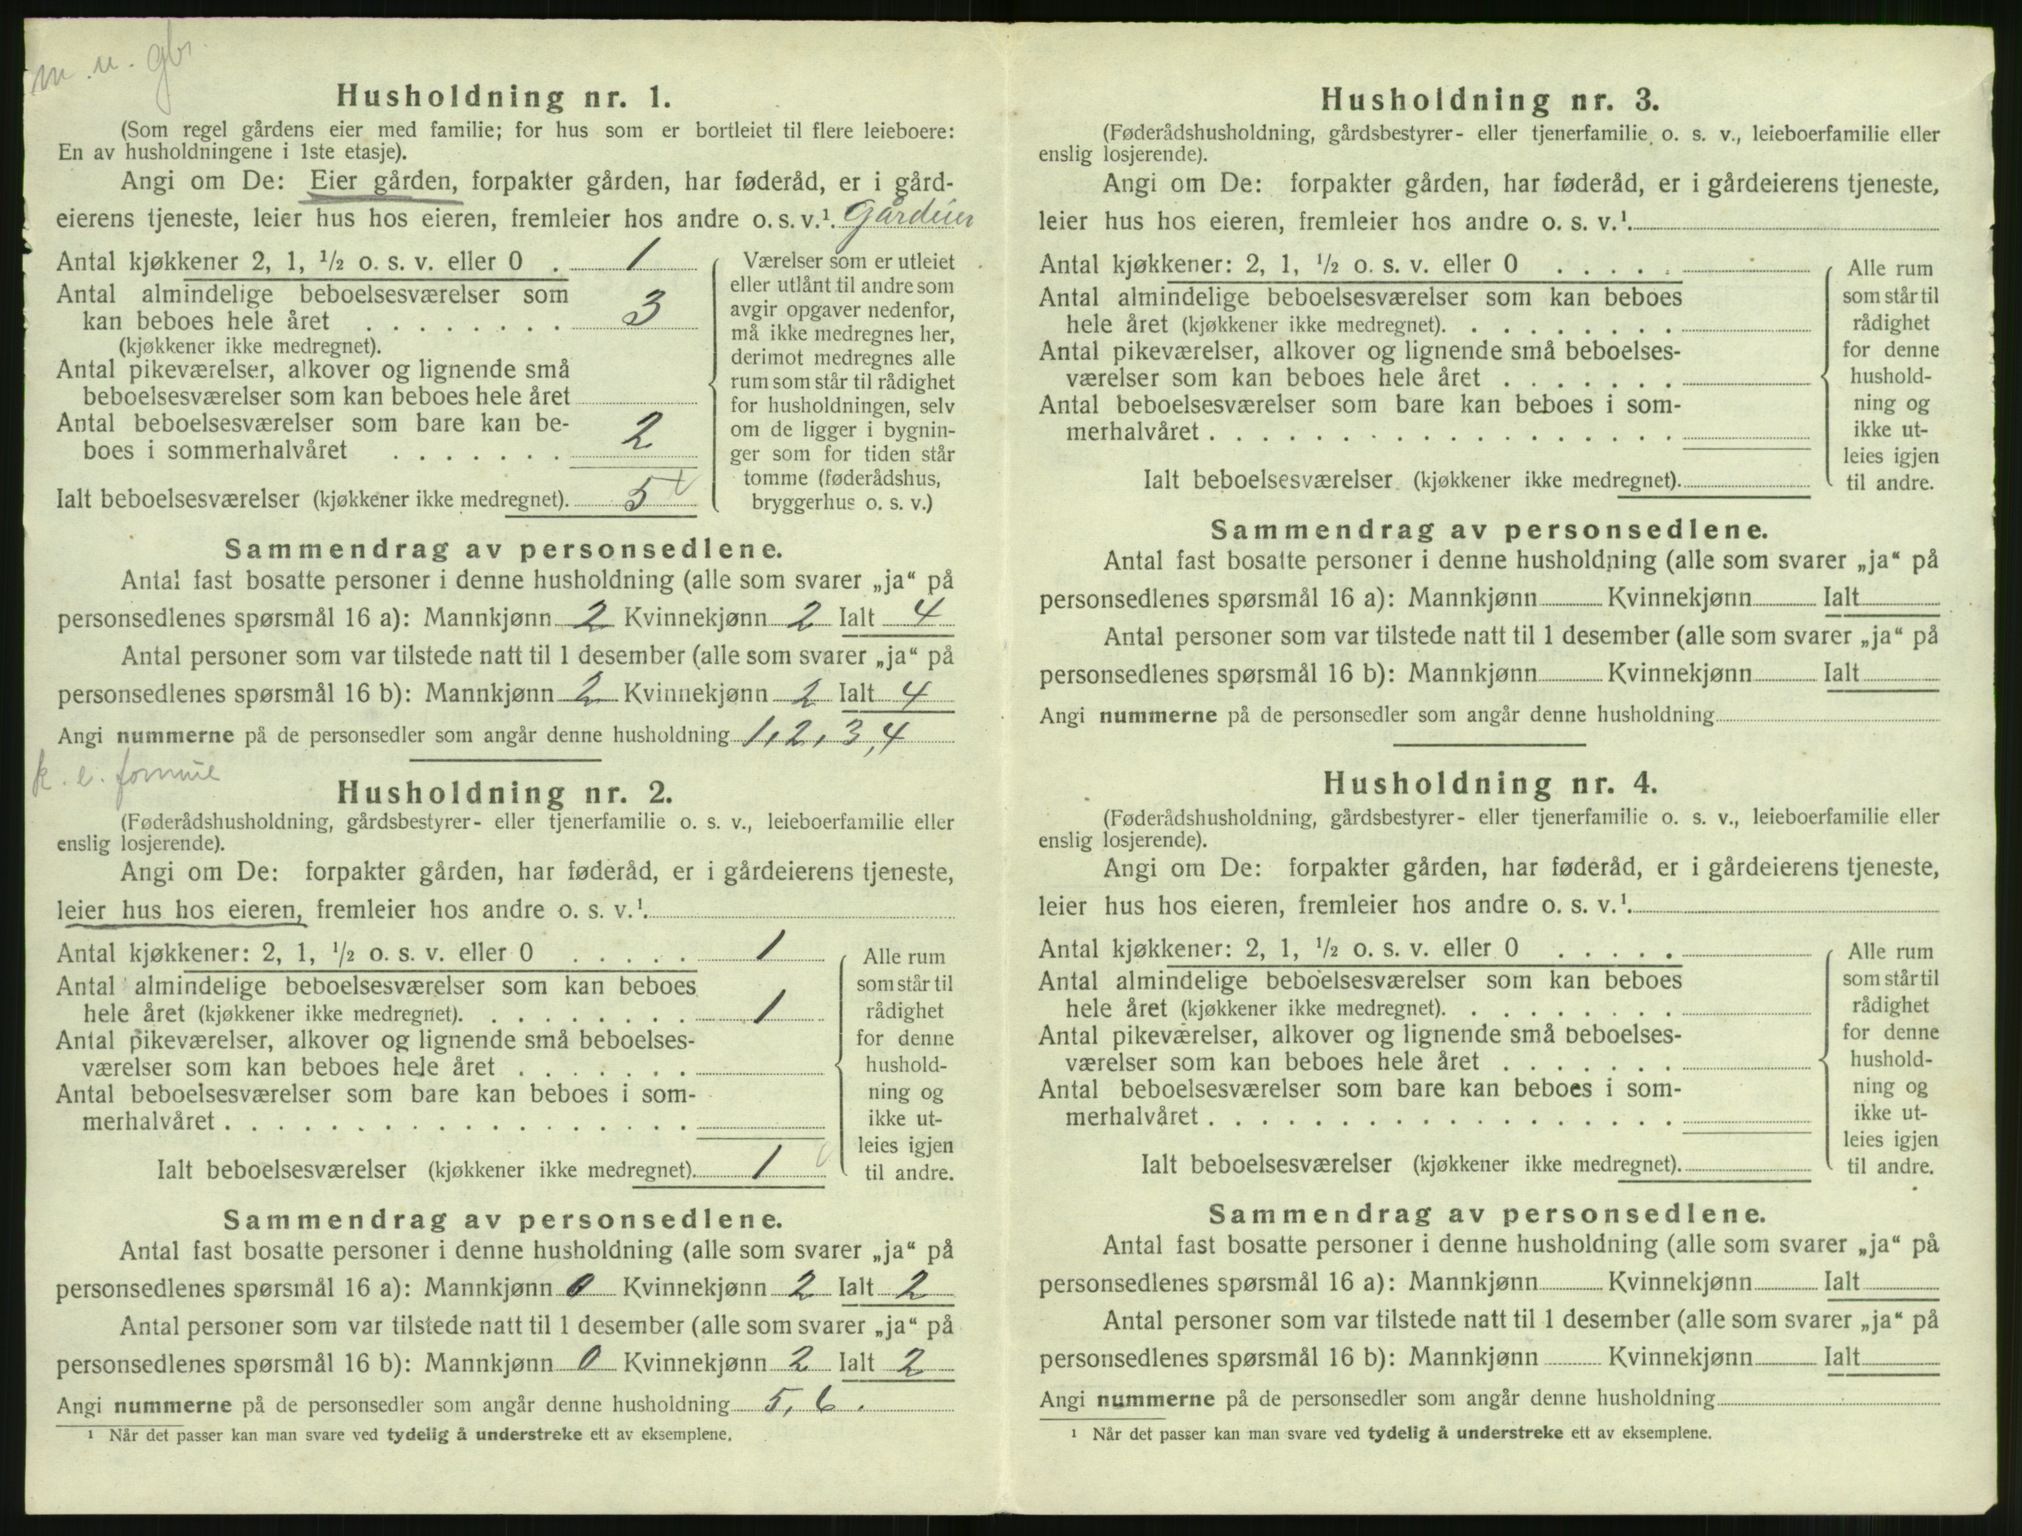 m. u. gbr.
Husholdning nr. 1.
(Som regel gårdens eier med familie; for hus som er bortleiet til flere leieboere:
En av husholdningene i 1ste etasje).
Angi om De: Eier gården, forpakter gården, har føderåd, er i gård-
eierens tjeneste, leier hus hos eieren, fremleier hos andre o. s. v.¹. Gårdeier
Antal kjøkkener 2, 1, ½ o. s. v. eller 0 . 1
Antal almindelige beboelsesværelser som
kan beboes hele året . . . . . . . . 3
(kjøkkener ikke medregnet).
Antal pikeværelser, alkover og lignende små
beboelsesværelser som kan beboes hele året
Antal beboelsesværelser som bare kan be-
boes i sommerhalvåret . . . . . . . 2
Ialt beboelsesværelser (kjøkkener ikke medregnet). 5
Værelser som er utleiet
eller utlånt til andre som
avgir opgaver nedenfor,
må ikke medregnes her,
derimot medregnes alle
rum som står til rådighet
for husholdningen, selv
om de ligger i bygnin-
ger som for tiden står
tomme (føderådshus,
bryggerhus o. s. v.)
Sammendrag av personsedlene.
Antal fast bosatte personer i denne husholdning (alle som svarer „ja“ på
personsedlenes spørsmål 16 a): Mannkjønn 2 Kvinnekjønn 2 Ialt 4
Antal personer som var tilstede natt til 1 desember (alle som svarer „ja“ på
personsedlenes spørsmål 16 b): Mannkjønn 2 Kvinnekjønn 2 Ialt 4
Angi nummerne på de personsedler som angår denne husholdning 1, 2, 3, 4
k. e.
Husholdning nr. 2.
(Føderådshusholdning, gårdsbestyrer- eller tjenerfamilie o. s. v., leieboerfamilie eller
enslig losjerende).
Angi om De: forpakter gården, har føderåd, er i gårdeierens tjeneste,
leier hus hos eieren, fremleier hos andre o. s. v.¹.
Antal kjøkkener: 2, 1, ½ o. s. v. eller 0 . . . . . 1
Antal almindelige beboelsesværelser som kan beboes
hele året (kjøkkener ikke medregnet). . . . . . . . . 1
Antal pikeværelser, alkover og lignende små beboelses-
værelser som kan beboes hele året . . . . . . .
Antal beboelsesværelser som bare kan beboes i som-
merhalvåret . . . . . . . . . . . . . . . . . .
Ialt beboelsesværelser (kjøkkener ikke medregnet). 1
Alle rum
som står til
rådighet
for denne
hushold-
ning og
ikke ut-
leies igjen
til andre.
Sammendrag av personsedlene.
Antal fast bosatte personer i denne husholdning (alle som svarer „ja“ på
personsedlenes spørsmål 16 a): Mannkjønn 0 Kvinnekjønn 2 Ialt 2
Antal personer som var tilstede natt til 1 desember (alle som svarer „ja“ på
personsedlenes spørsmål 16 b): Mannkjønn 0 Kvinnekjønn 2 Ialt 2
Angi nummerne på de personsedler som angår denne husholdning 5, 6.
¹ Når det passer kan man svare ved tydelig å understreke ett av eksemplene.
Husholdning nr. 3.
(Føderådshusholdning, gårdsbestyrer- eller tjenerfamilie o. s. v., leieboerfamilie eller
enslig losjerende).
Angi om De: forpakter gården, har føderåd, er i gårdeierens tjeneste,
leier hus hos eieren, fremleier hos andre o. s. v.¹.
Antal kjøkkener: 2, 1, ½ o. s. v. eller 0 . . . . .
Antal almindelige beboelsesværelser som kan beboes
hele året (kjøkkener ikke medregnet). . . . . . . . .
Antal pikeværelser, alkover og lignende små beboelses-
værelser som kan beboes hele året . . . . . . .
Antal beboelsesværelser som bare kan beboes i som-
merhalvåret . . . . . . . . . . . . . . . . . .
Ialt beboelsesværelser (kjøkkener ikke medregnet).
Alle rum
som står til
rådighet
for denne
hushold-
ning og
ikke ut-
leies igjen
til andre.
Sammendrag av personsedlene.
Antal fast bosatte personer i denne husholdning (alle som svarer „ja“ på
personsedlenes spørsmål 16 a): Mannkjønn Kvinnekjønn Ialt
Antal personer som var tilstede natt til 1 desember (alle som svarer „ja“ på
personsedlenes spørsmål 16 b): Mannkjønn Kvinnekjønn Ialt
Angi nummerne på de personsedler som angår denne husholdning
Husholdning nr. 4.
(Føderådshusholdning, gårdsbestyrer- eller tjenerfamilie o. s. v., leieboerfamilie eller
enslig losjerende).
Angi om De: forpakter gården, har føderåd, er i gårdeierens tjeneste,
leier hus hos eieren, fremleier hos andre o. s. v.¹.
Antal kjøkkener: 2, 1, ½ o. s. v. eller 0 . . . . .
Antal almindelige beboelsesværelser som kan beboes
hele året (kjøkkener ikke medregnet). . . . . . . . .
Antal pikeværelser, alkover og lignende små beboelses-
værelser som kan beboes hele året . . . . . . .
Antal beboelsesværelser som bare kan beboes i som-
merhalvåret . . . . . . . . . . . . . . . . . .
Ialt beboelsesværelser (kjøkkener ikke medregnet).
Alle rum
som står til
rådighet
for denne
hushold-
ning og
ikke ut-
leies igjen
til andre.
Sammendrag av personsedlene.
Antal fast bosatte personer i denne husholdning (alle som svarer „ja“ på
personsedlenes spørsmål 16 a): Mannkjønn Kvinnekjønn Ialt
Antal personer som var tilstede natt til 1 desember (alle som svarer „ja“ på
personsedlenes spørsmål 16 b): Mannkjønn Kvinnekjønn Ialt
Angi nummerne på de personsedler som angår denne husholdning
¹ Når det passer kan man svare ved tydelig å understreke ett av eksemplene.